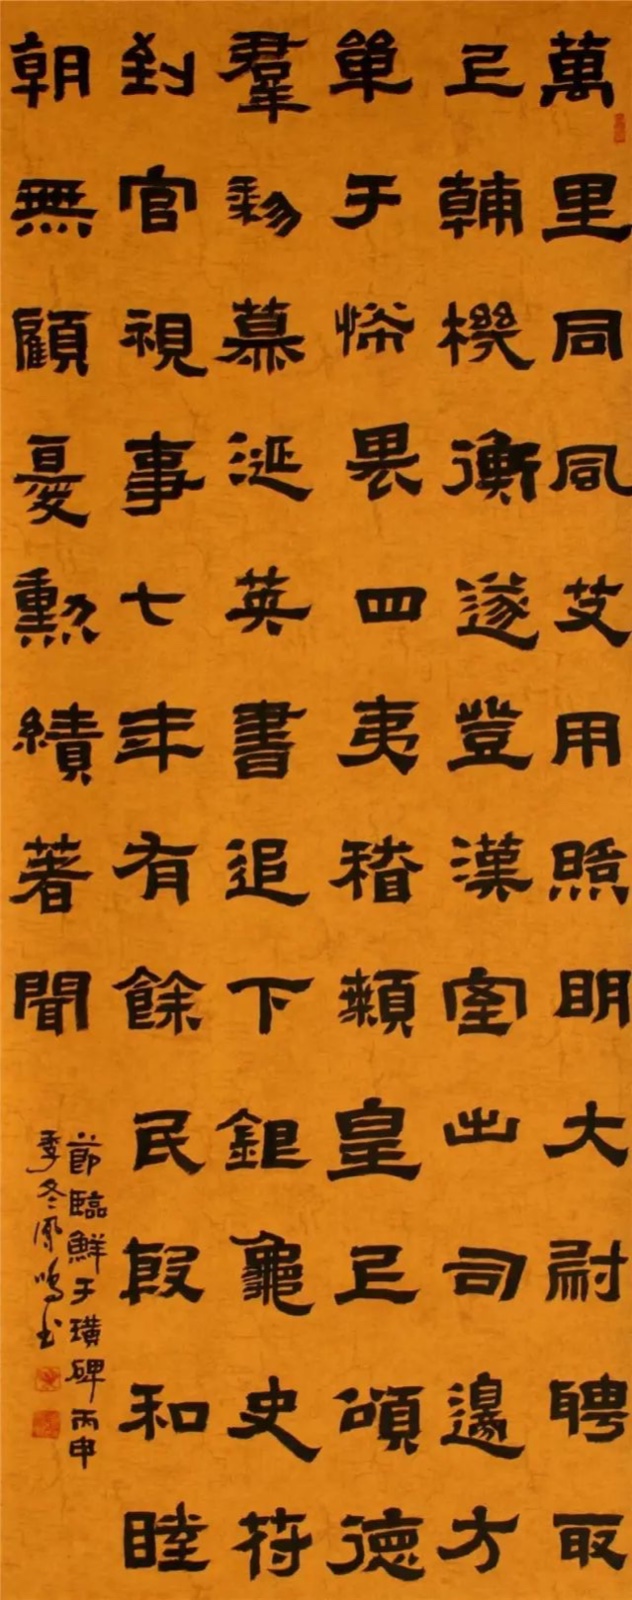 萬里同風艾用照明大尉聘取
上輔機衡遂登漢室出司邊方
單于怖畏四夷稽顙皇上頌德
羣黎慕涎英書追下銀龜史符
到官視事七年有餘民殷和睦
朝無顧憂勲績著聞
節臨鮮于璜碑丙申
季冬鳳鳴书